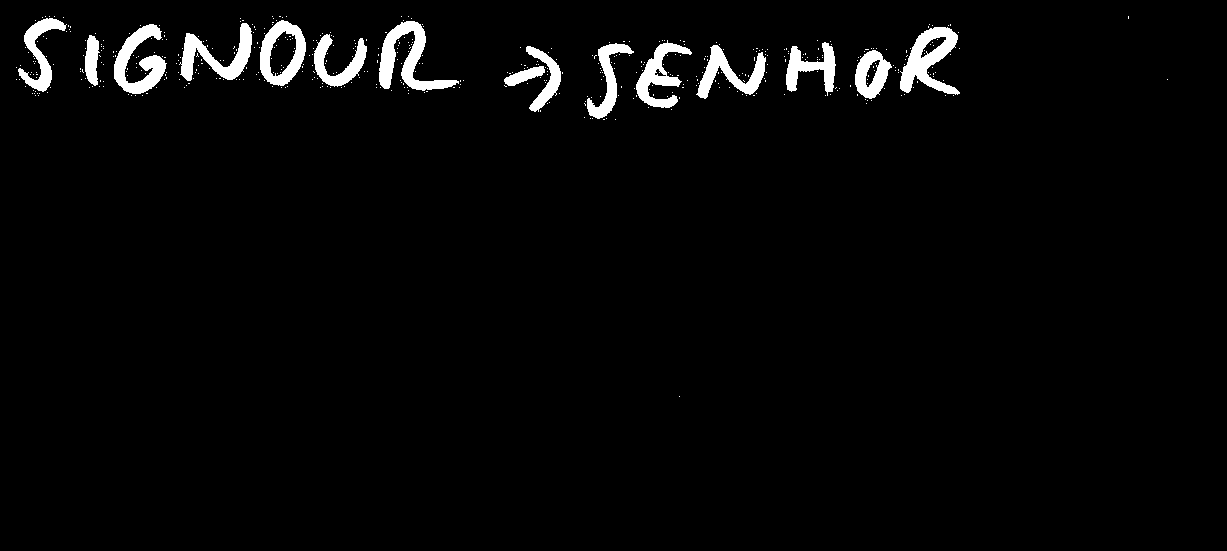 SIGNOUR → SENHOR